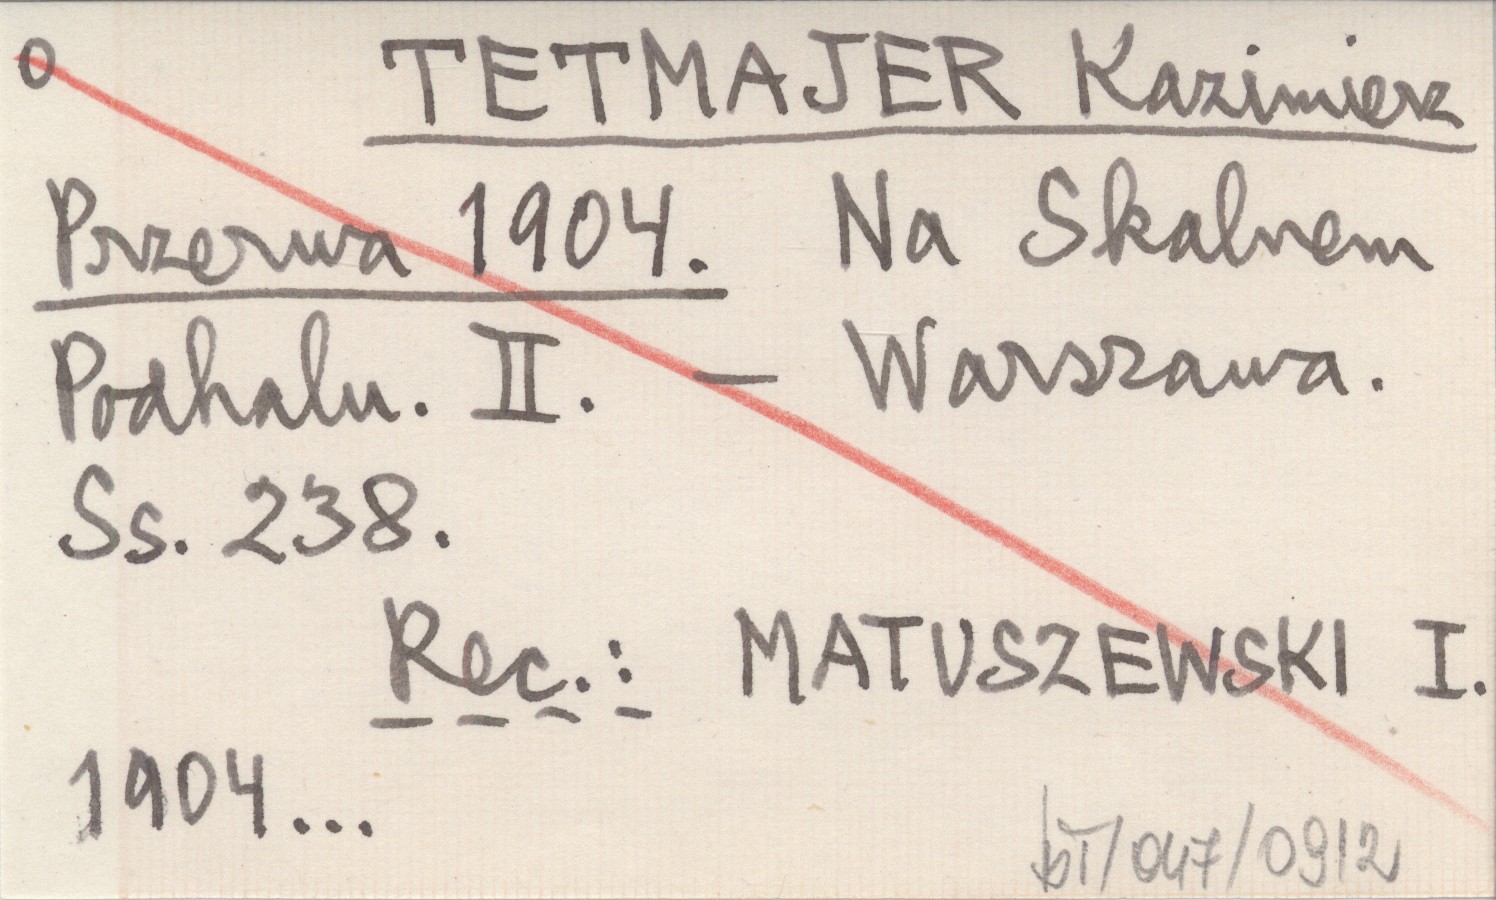 0 TETMAJER Kazimierz
Przerwa 1904. Na Skalnem
Podhalu. II. — Warszawa.
Ss. 238.
Rec.: MATUSZEWSKI I.
1904...
bT/047/0912